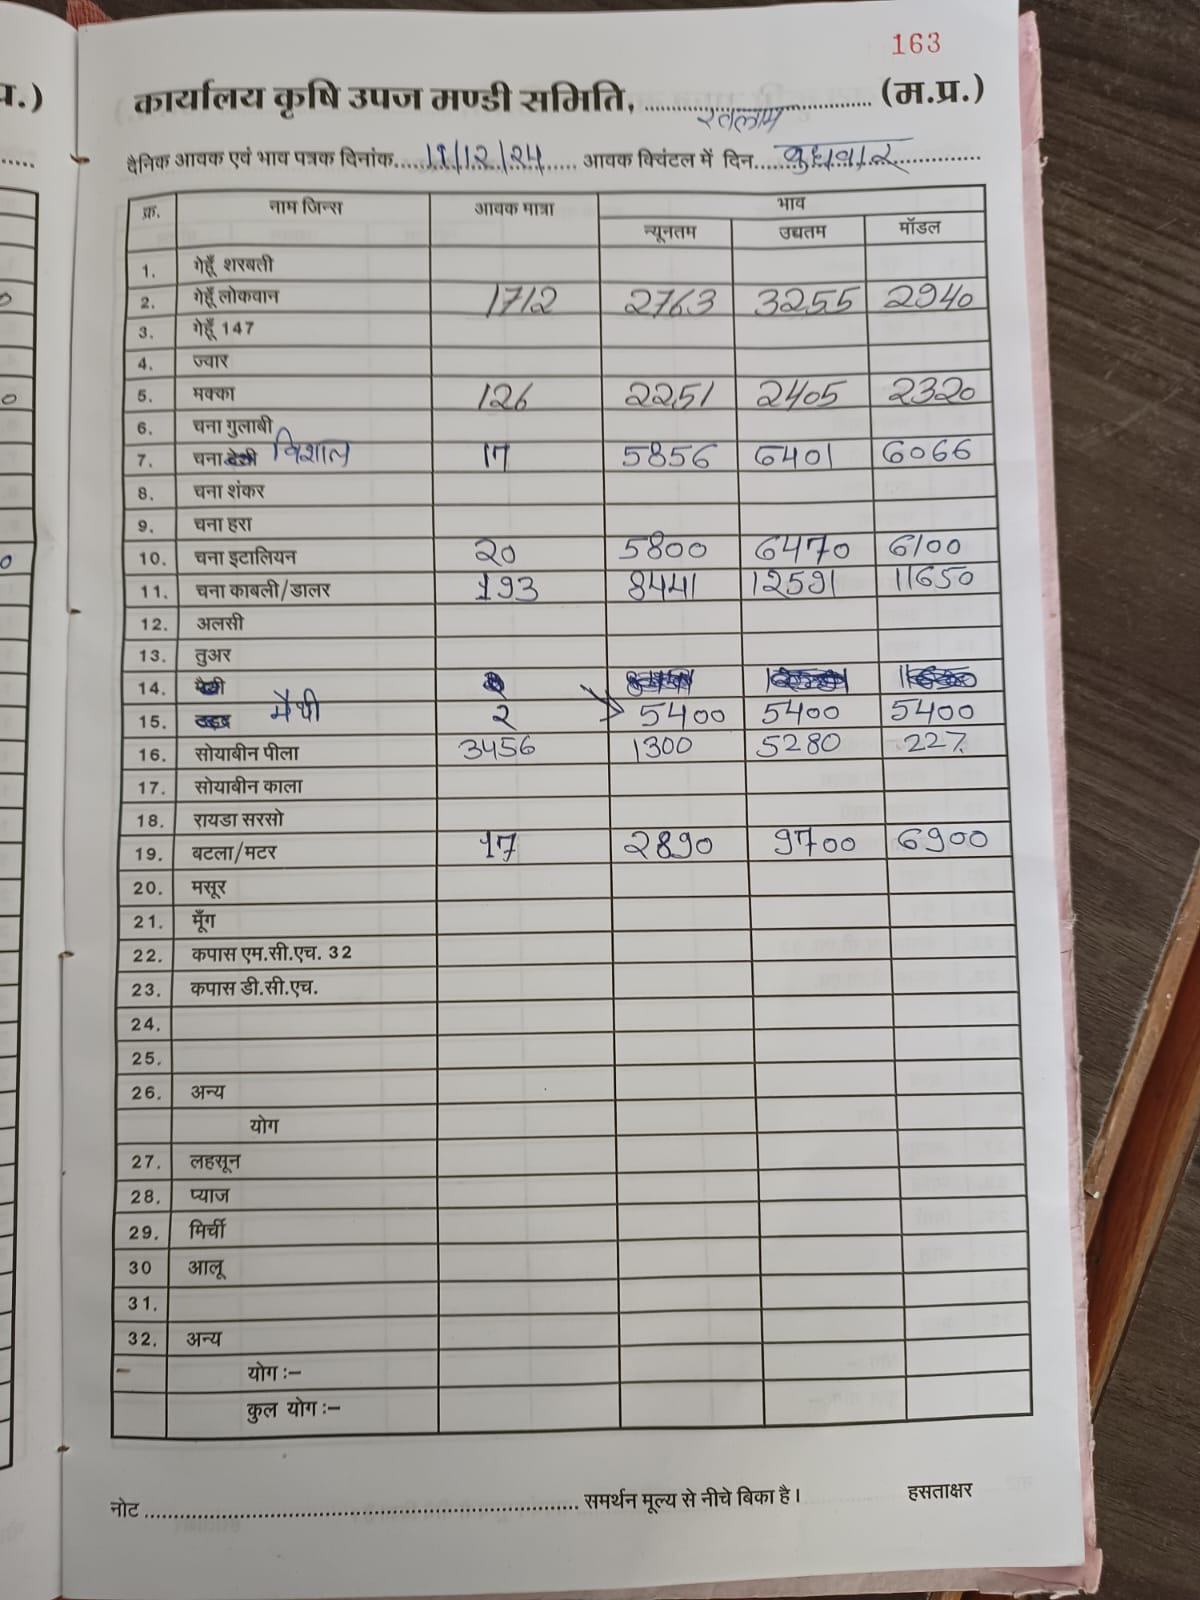 163
कार्यालय कृषि उपज मण्डी समिति, रतलाम (म.प्र.)
दैनिक आवक एवं भाव पत्रक दिनांक 11/12/24 आवक क्विंटल में दिन बुधवार
क्र. नाम जिन्स आवक मात्रा भाव
न्यूनतम उद्यतम मॉडल
1. गेहूँ शरबती
2. गेहूँ लोकवान 1712 2763 3255 2940
3. गेहूँ 147
4. ज्वार
5. मक्का 126 2251 2405 2320
6. चना गुलाबी
7. चना विशाल 17 5856 6401 6066
8. चना शंकर
9. चना हरा
10. चना इटालियन 20 5800 6470 6100
11. चना काबली/डालर 193 8441 12591 11650
12. अलसी
13. तुअर
14.
15. मैथी २ 5400 5400 5400
16. सोयाबीन पीला 3456 1300 5280
17. सोयाबीन काला
18. रायडा सरसो
19. बटला/मटर 17 2890 9700 6900
20. मसूर
21. मूँग
22. कपास एम.सी.एच. 32
23. कपास डी.सी.एच.
24.
25.
26. अन्य
योग
27. लहसून
28. प्याज
29. मिर्ची
30 आलू
31.
32. अन्य
योग :–
कुल योग :–
नोट समर्थन मूल्य से नीचे बिका है। हसताक्षर
प्र.)